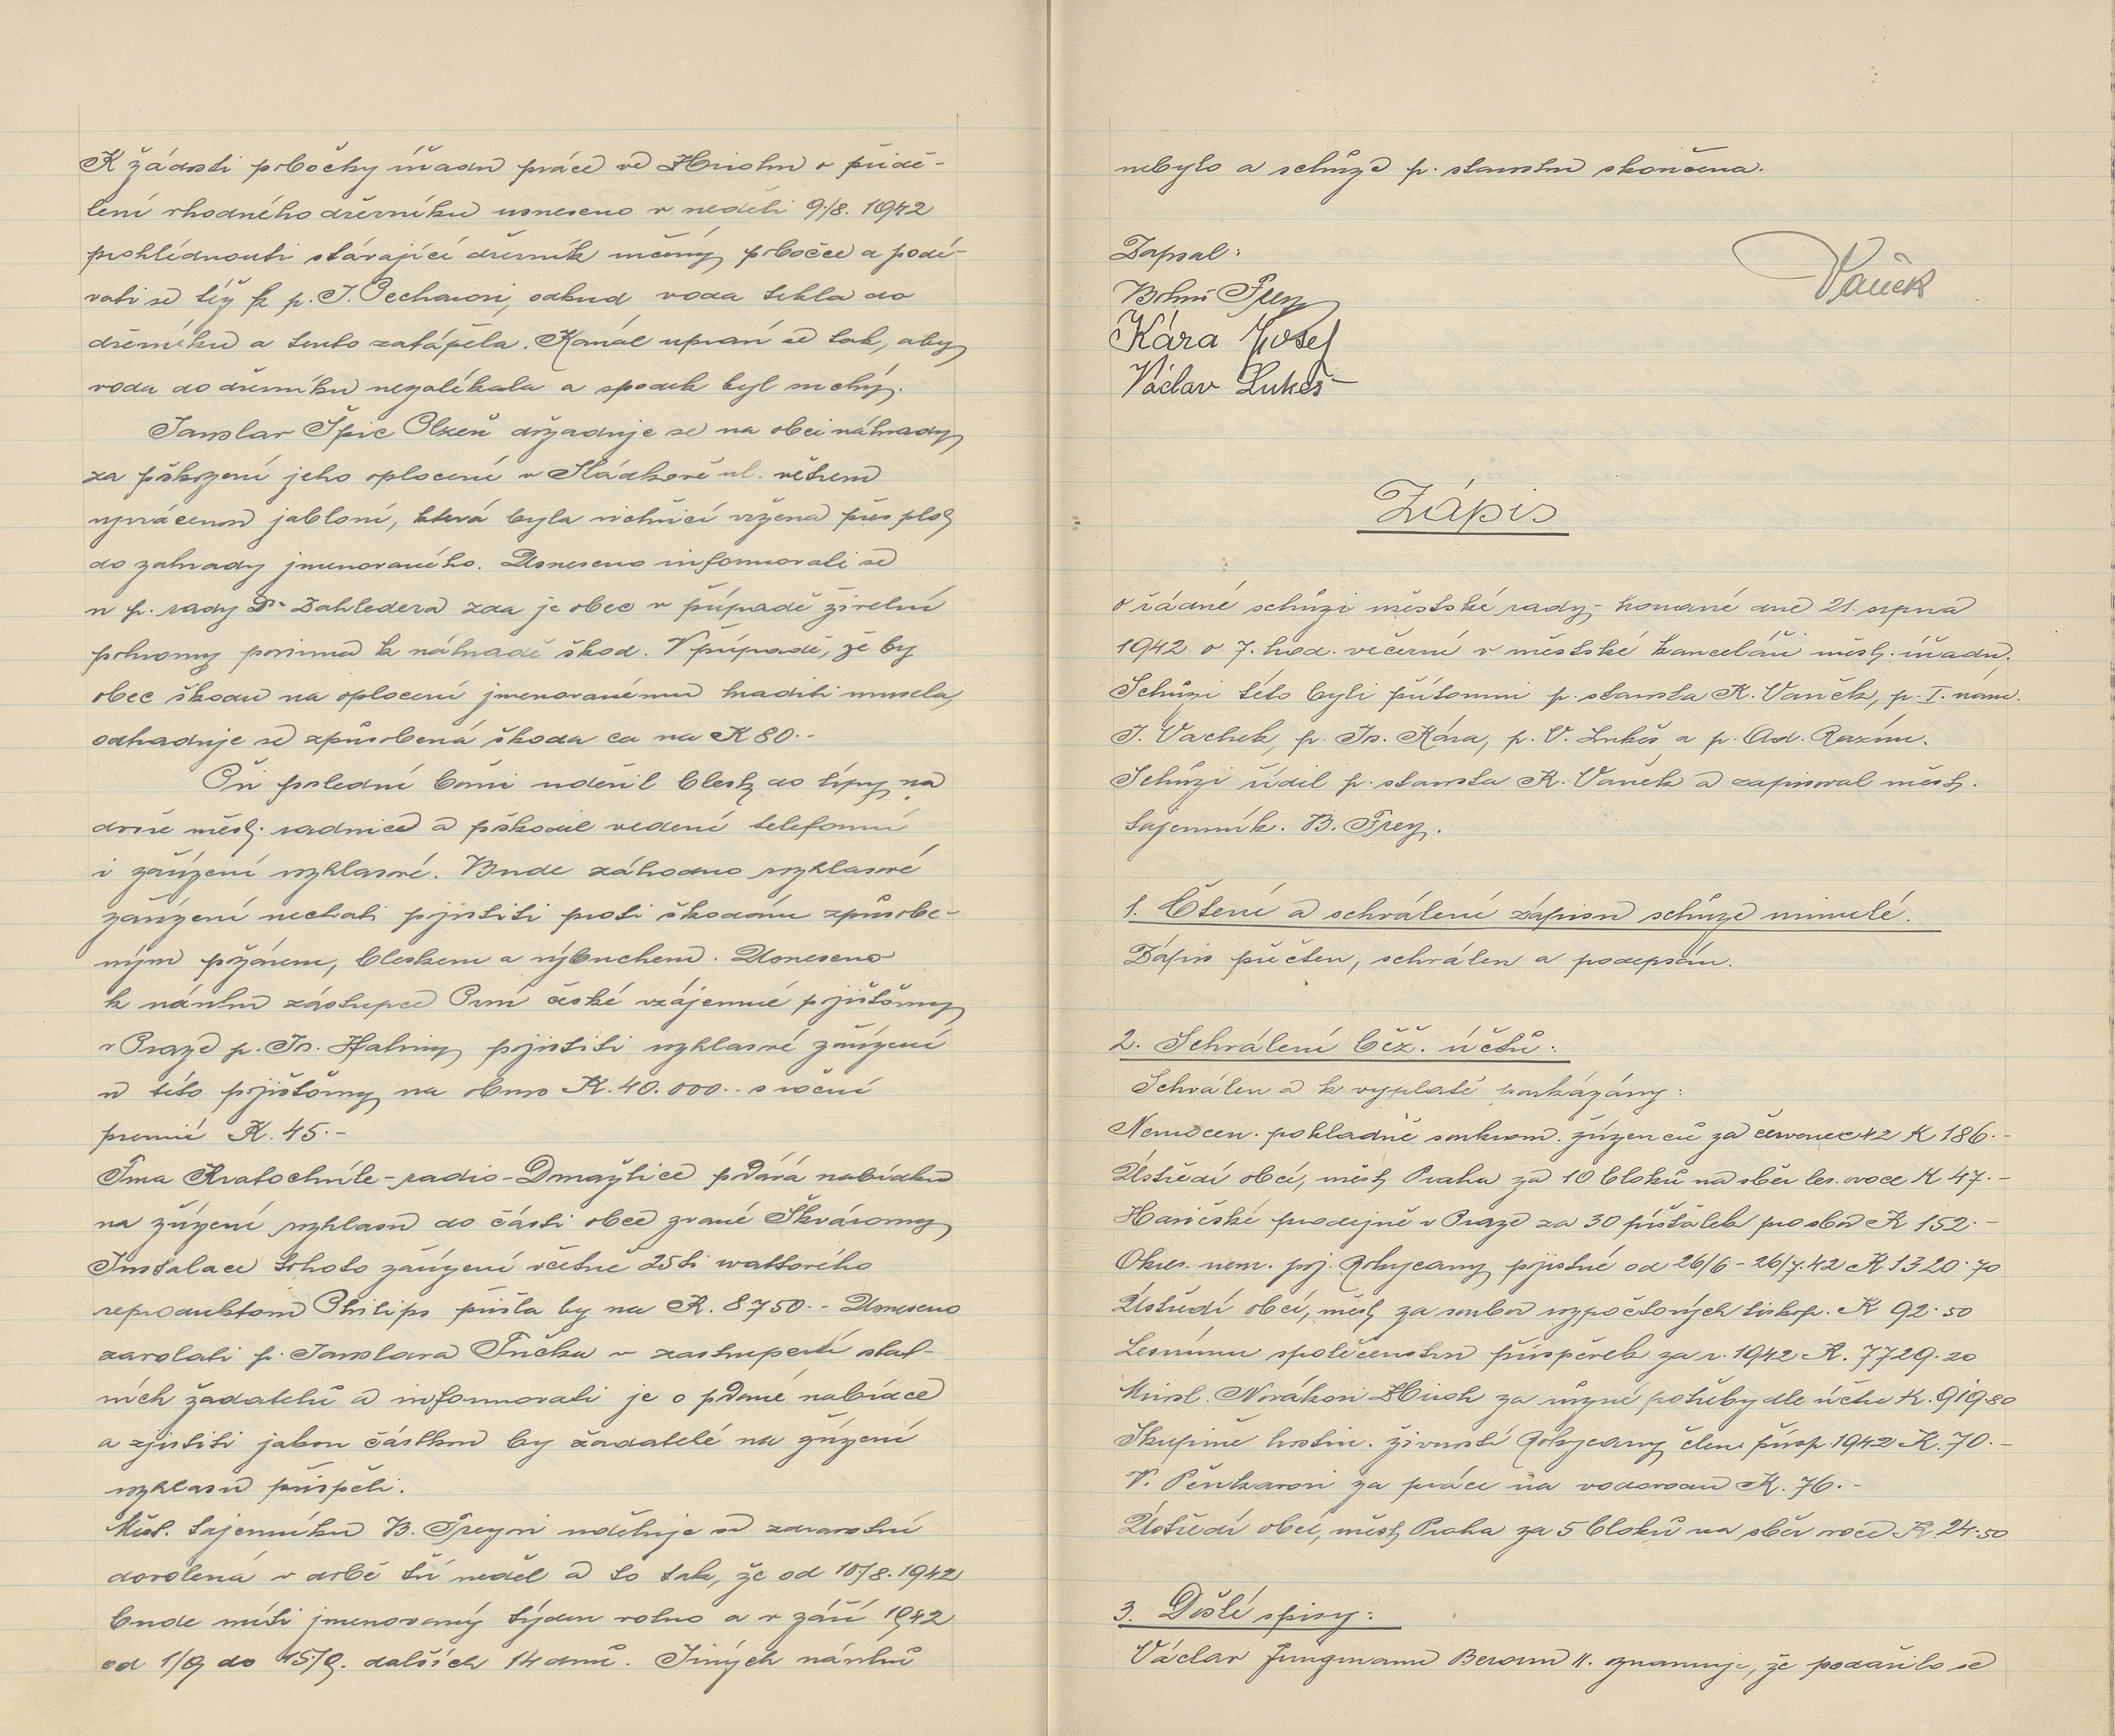 K žádosti pobočky úřadu práce ve Zbirohu o přidě-
lení vhodného dřevníku usneseno v neděli 9./8. 1942
prohlédnouti stávající dřevník určený pobočce a podí-
vati se též k p. J. Pechovi, odkud voda tekla do
dřevníku a tento zatápěla. Kanál upraví se tak, aby
voda do dřevníku nezatékala a spodek byl suchý.
Jaroslav Špic Plzeň dožaduje se na obci náhrady
za poškození jeho oplocení v Sládkově ul. větrem
vyvrácenou jabloní, která byla vichřicí vržena přes plot
do zahrady jmenovaného. Usneseno informovati se
u p. rady Dr Zahledera zda je obec v případě živelní
pohromy povinna k náhradě škod. V případě, že by
obec škodu na oplocení jmenovanému hraditi musela,
odhaduje se způsobená škoda ca na K 80.-
Při poslední bouři udeřil blesk do lípy na
dvoře měst. radnice a poškodil vedení telefonní
i zařízení rozhlasové. Bude záhodno rozhlasové
zařízení nechati pojistiti proti škodám způsobe-
ným požárem, bleskem a výbuchem. Usneseno
k návrhu zástupce První české vzájemné pojišťovny
v Praze p. Jos. Hahny pojistiti rozhlasové zařízení
u této pojišťovny na obnos K. 40.000.- s roční
premií K. 45.-
Fma Kratochvíle-radio-Domažlice podává nabídku
na zřízení rozhlasu do části obce zvané Škvárovny
Instalace tohoto zařízení včetně 25ti wattového
reproduktoru Philips přišla by na K. 8750.- Usneseno
zavolati p. Jaroslava Fučka v zastoupení stat-
ních žadatelů a informovati je o podané nabídce
a zjistiti jakou částkou by žadatelé na zřízení
rozhlasu přispěli.
Měst. tajemníku B. Freyovi uděluje se zdravotní
dovolená v době tří neděl a to tak, že od 10/8. 1942
bude míti jmenovaný týden volno a v září 1942
od 1/9 do 15/9. dalších 14 dnů. Jiných návrhů
nebylo a schůze p. starostou skončena.
Zapsal:
Bohus Frey
Vaněk
Kára Josef
Václav Lukeš
Zápis
o řádné schůzi městské rady - konané dne 21. srpna
1942 o 7. hod. večerní v městské kanceláři měst. úřadu.
Schůzi této byli přítomni p. starosta K. Vaněk, p. I. nám.
J. Vachek, p. Jos. Kára, p. V. Lukeš a p. Ad. Razím.
Schůzi řídil p. starosta K. Vaněk a zapisoval měst.
tajemník. B. Frey.
1. Čtení a schválení zápisu schůze minulé.
Zápis přečten, schválen a podepsán.
2. Schválení běž. účtů:
Schválen a k vyplatě poukázány:
Nemocen. pokladně soukrom. zřízenců za červenec 42 K 186.-
Ústředí obcí, měst Praha za 10 bloků na sběr les. ovoce K 47.-
Hasičské prodejně v Praze za 30 píšťalek pro sbor K 152.-
Okres. nem. poj. Rokycany pojistné od 26/6 - 26/7.42 K 1320.70
Ústředí obcí, měst za soubor rozpočtových tiskop. K 92.50
Lesnímu společenstvu příspěvek za r. 1942 K. 7729.20
Mirosl. Novákovi Zbiroh za různé potřeby dle účtu K. 919.80
Skupině hostin. živností Rokycany člen. přísp. 1942 K. 70.-
V. Pěnkavovi za práce na vodovodu K. 76.-
Ústředí obcí, měst Praha za 5 bloků na sběr ovoce K. 24.50
3. Došlé spisy:
Václav Jungmann Beroun II. oznamuje, že podařilo se